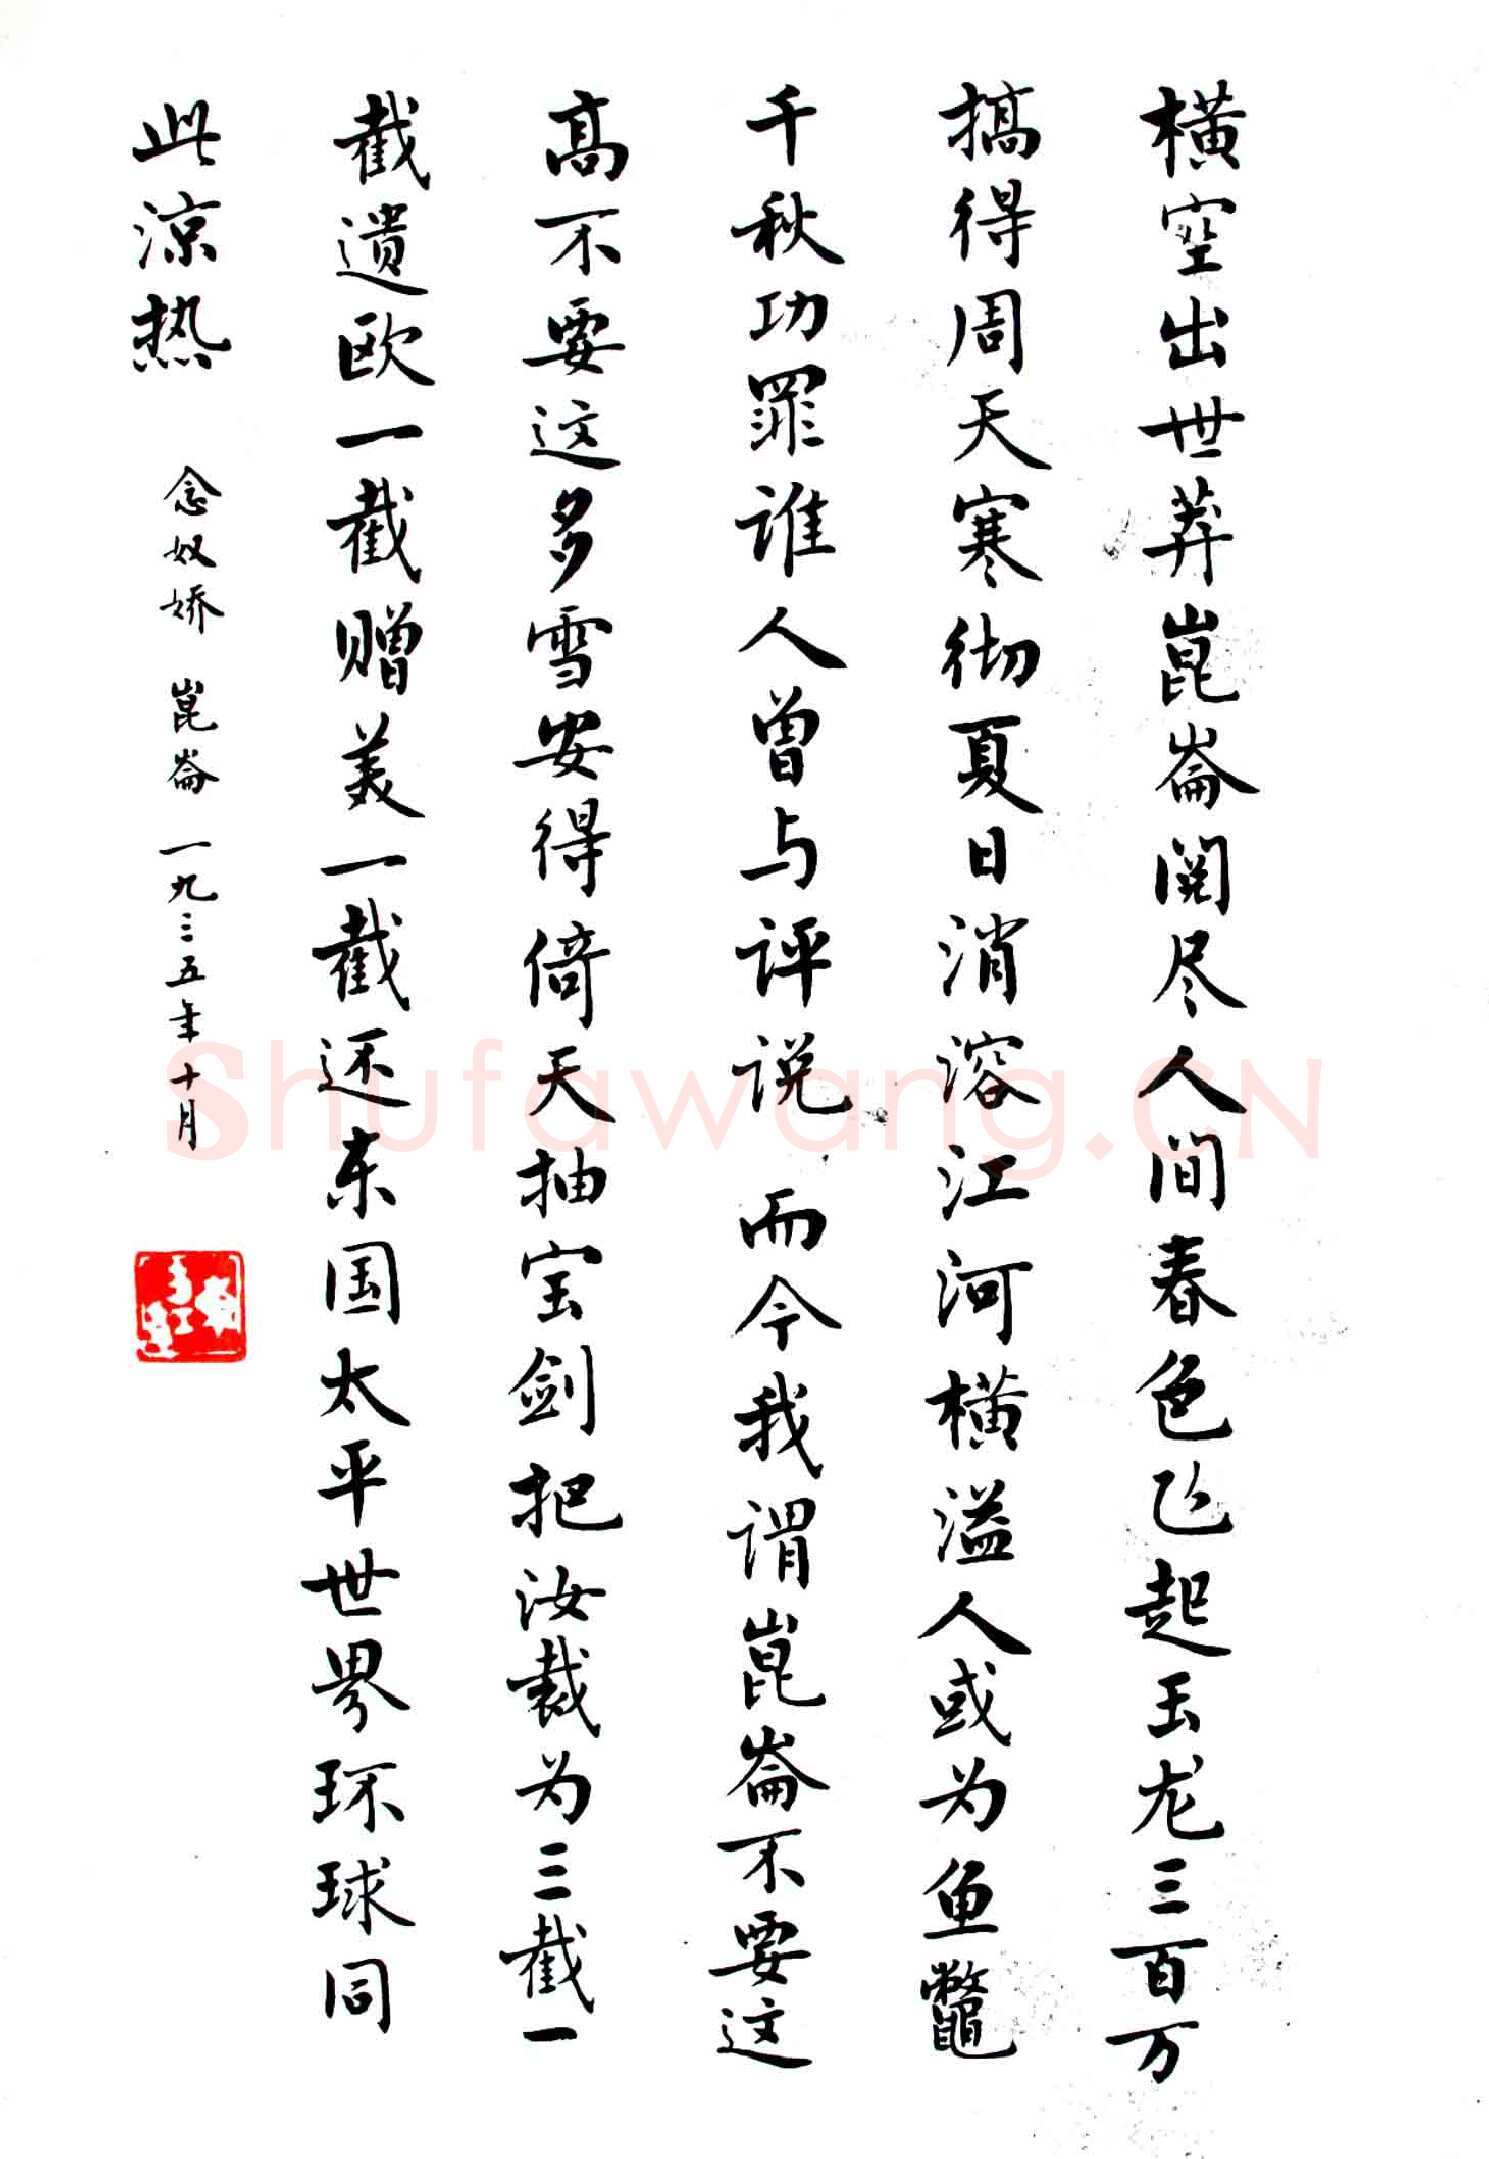 横空出世莽崑崙阅尽人间春色飞起玉龙三百万
搞得周天寒彻夏日消溶江河横溢人或为鱼鳖
千秋功罪谁人曾与评说 而今我谓崑崙不要这
高不要这多雪安得倚天抽宝剑把汝裁为三截一
截遗欧一截赠美一截还东国太平世界环球同
此凉热
念奴娇 崑崙 一九三五年十月
Shufawang.CN